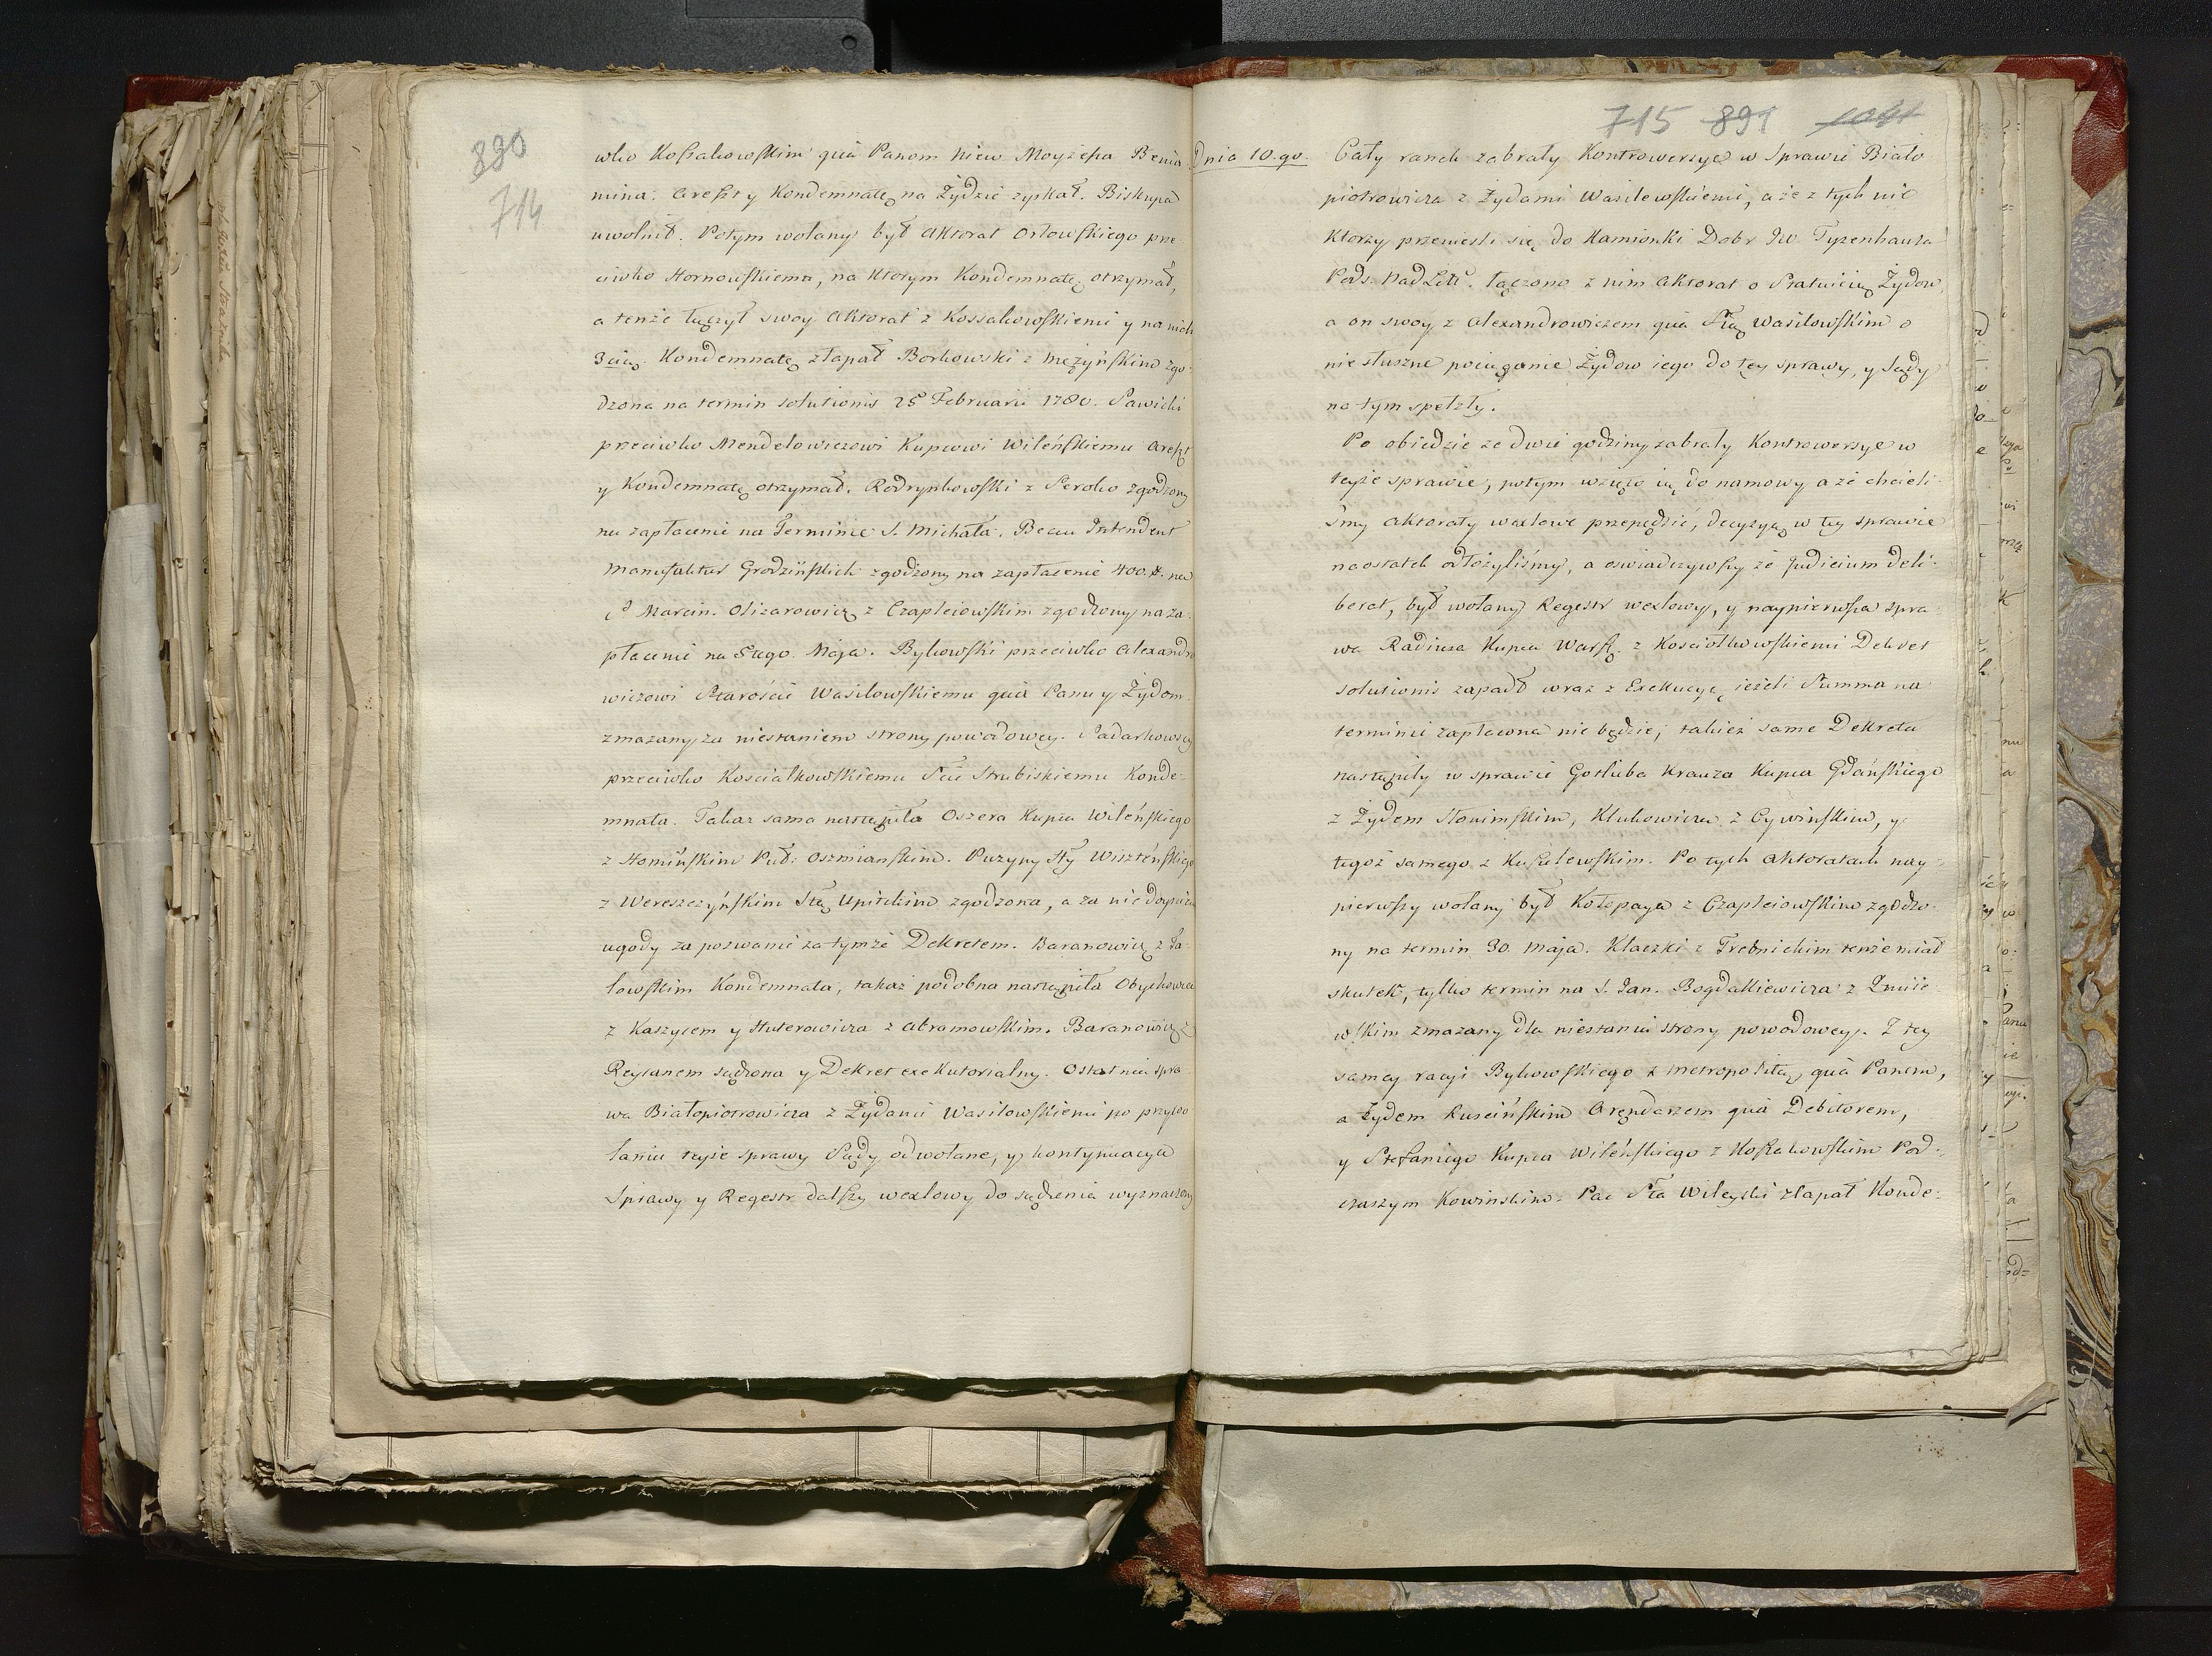 890
714
wko Koſsakowſkim quà Panom Niew Moyżeſza Benia
mina: Areſzt y Kondemnatę na Żydzie zyſkał. Biskupa
uwolnił. Potym wołany był Aktorat Orłowſkiego prze
ciwko Hornowſkiemu, na ktorym Kondemnatę otrzymał,
a tenże łączył swoy Aktorat z Kossakowſkiemi y na nich
3cią. Kondemnatę złapał Borkowski z Mężyńſkim zgo-
dzona na termin solutionis 25 Februarii 1780. Sawicki
przeciwko Mendelowiczowi Kupcowi Wileńſkiemu Areſzt
y Kondemnatę otrzymał. Rodrynkowſki z Seroko zgodzony
na zapłacenie na Terminie S. Michała. Becu Intendent
Manufaktur Grodzińſkich zgodzony na zapłacenie 400.#. na
S Marcin. Olizarowicz z Czapleiowſkim zgodzony na za-
płacenie na 5tego Maja. Bykowſki przeciwko Alexandro
wiczowi Staroście Wasilowſkiemu quà Panu y Żydom
zmazany za niestaniem strony powodowey. Sadarkowscy
przeciwko Kosciałkowſkiemu Stie Strubiskiemu Konde-
mnata. Takaż sama nastąpiła Oszera Kupca Wileńſkiego
z Homińſkim Puł: Oszmiańſkim. Puzyny Sty Wisztińſkiego
z Wereszczyńſkim Stą Upitſkim zgodzona, a za niedoyście
ugody za pozwanie za tymże Dekretem. Baranowicz z Sa-
łowſkim Kondemnata, takaż podobna nastąpiła Obychowicza
z Kaszycem y Huterowicza z Abramowſkim. Baranowicz z
Reytanem sądzona y Dekret exekutorialny. Ostatnia spra
wa Białopiotrowicza z Żydami Wasilowſkiemi po przywo
łaniu teyże sprawy Sądy odwołane, y kontynuacya
Sprawy y Regestr dalſzy wexlowy do sądzenia wyznaczony
715 891
Dnia 10.go. Cały ranek zabrały Kontrowersye w Sprawie Biało
piotrowicza z Żydami Wasilewſkiemi, a że z tych nie
ktorzy przenieśli się do Kamionki Dobr JW. Tyzenhauza
Pods. Nad Litt. łączono z nim Aktorat o Statuicią Żydow,
a on swoy z Alexandrowiczem quà Stą Wasilowſkim o
nie słuszne pociąganie Żydow iego do tey sprawy, y Sądy
na tym spełzły.
Po obiedzie ze dwie godziny zabrały Kontrowersye w
teyże sprawie, potym wzięto ią do namowy a że chcieli-
śmy Aktoraty wexlowe przepędzić, decyzyą w tey sprawie
na ostatek odłożyliśmy, a oswiadczywſzy że Judicium deli-
berat, był wołany Regestr wexlowy, y naypierwſza spra-
wa Radiusa Kupca Warſz. z Kosciołkowſkiemi Dekret
solutionis zapadł wraz z Exekucyą ieżeli Summa na
terminie zapłacona nie będzie; takież same Dekreta
nastąpiły w sprawie Gotliba Krauza Kupca Gdańſkiego
z Żydem Słonimſkim, Klukowicza z Cywińſkim, y
tegoż samego z Kuſzelewſkim. Po tych Aktoratach nay-
pierwſzy wołany był Kołopaya z Czapleiowſkim zgodzo-
ny na termin 30. Maja. Klaczki z Trebnickim tenże miał
skutek, tylko termin na S. Jan. Bogdakiewicza z Zmiie
wſkim zmazany dla niestania strony powodowey. Z tey
samey racyi Bykowſkiego z Metropolitą quà Panem,
a Żydem Ruscińſkim Arędarzem quà Debitorem,
y Stefaniego Kupca Wileńſkiego z Koſsakowſkim Pod-
czaszym Kowinskim. Pac Sta Wileyski złapał Konde-